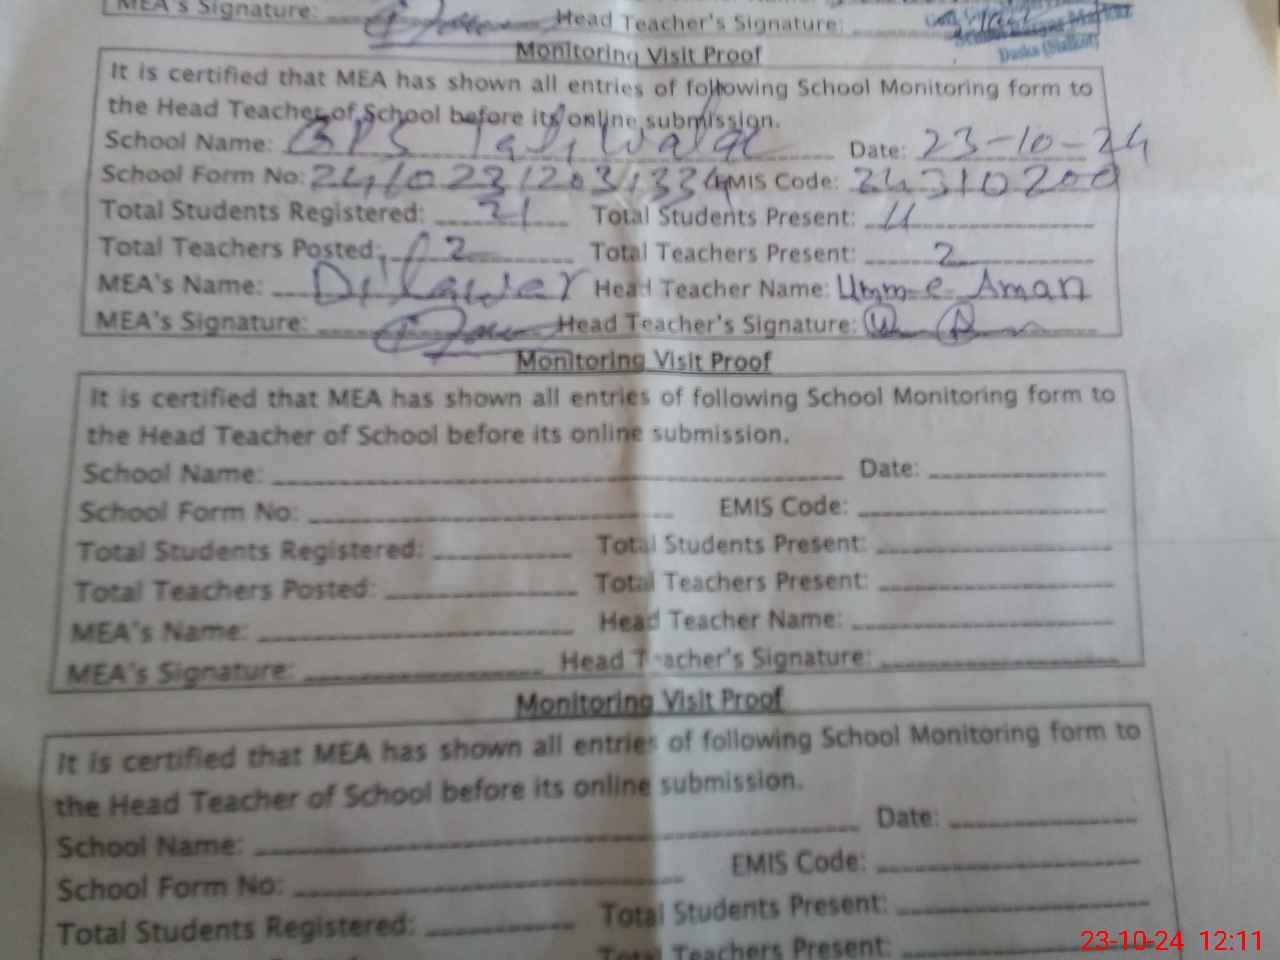 MEA's Signature: Head Teacher's Signature:
Daska (Sialkot)
Monitoring Visit Proof
It is certified that MEA has shown all entries of following School Monitoring form to
the Head Teacher of School before its online submission.
School Name: GPS Date: 23-10-24
School Form No: EMIS Code: 24310200
Total Students Registered: 21 Total Students Present: 11
Total Teachers Posted: 2 Total Teachers Present: 2
MEA's Name: Dilawer Head Teacher Name: Umm-e-Aman
MEA's Signature: Head Teacher's Signature:
Monitoring Visit Proof
It is certified that MEA has shown all entries of following School Monitoring form to
the Head Teacher of School before its online submission.
School Name: Date:
School Form No: EMIS Code:
Total Students Registered: Total Students Present:
Total Teachers Posted: Total Teachers Present:
MEA's Name: Head Teacher Name:
MEA's Signature: Head Teacher's Signature:
Monitoring Visit Proof
It is certified that MEA has shown all entries of following School Monitoring form to
the Head Teacher of School before its online submission.
School Name: Date:
School Form No: EMIS Code:
Total Students Registered: Total Students Present:
Total Teachers Present:
23-10-24 12:11